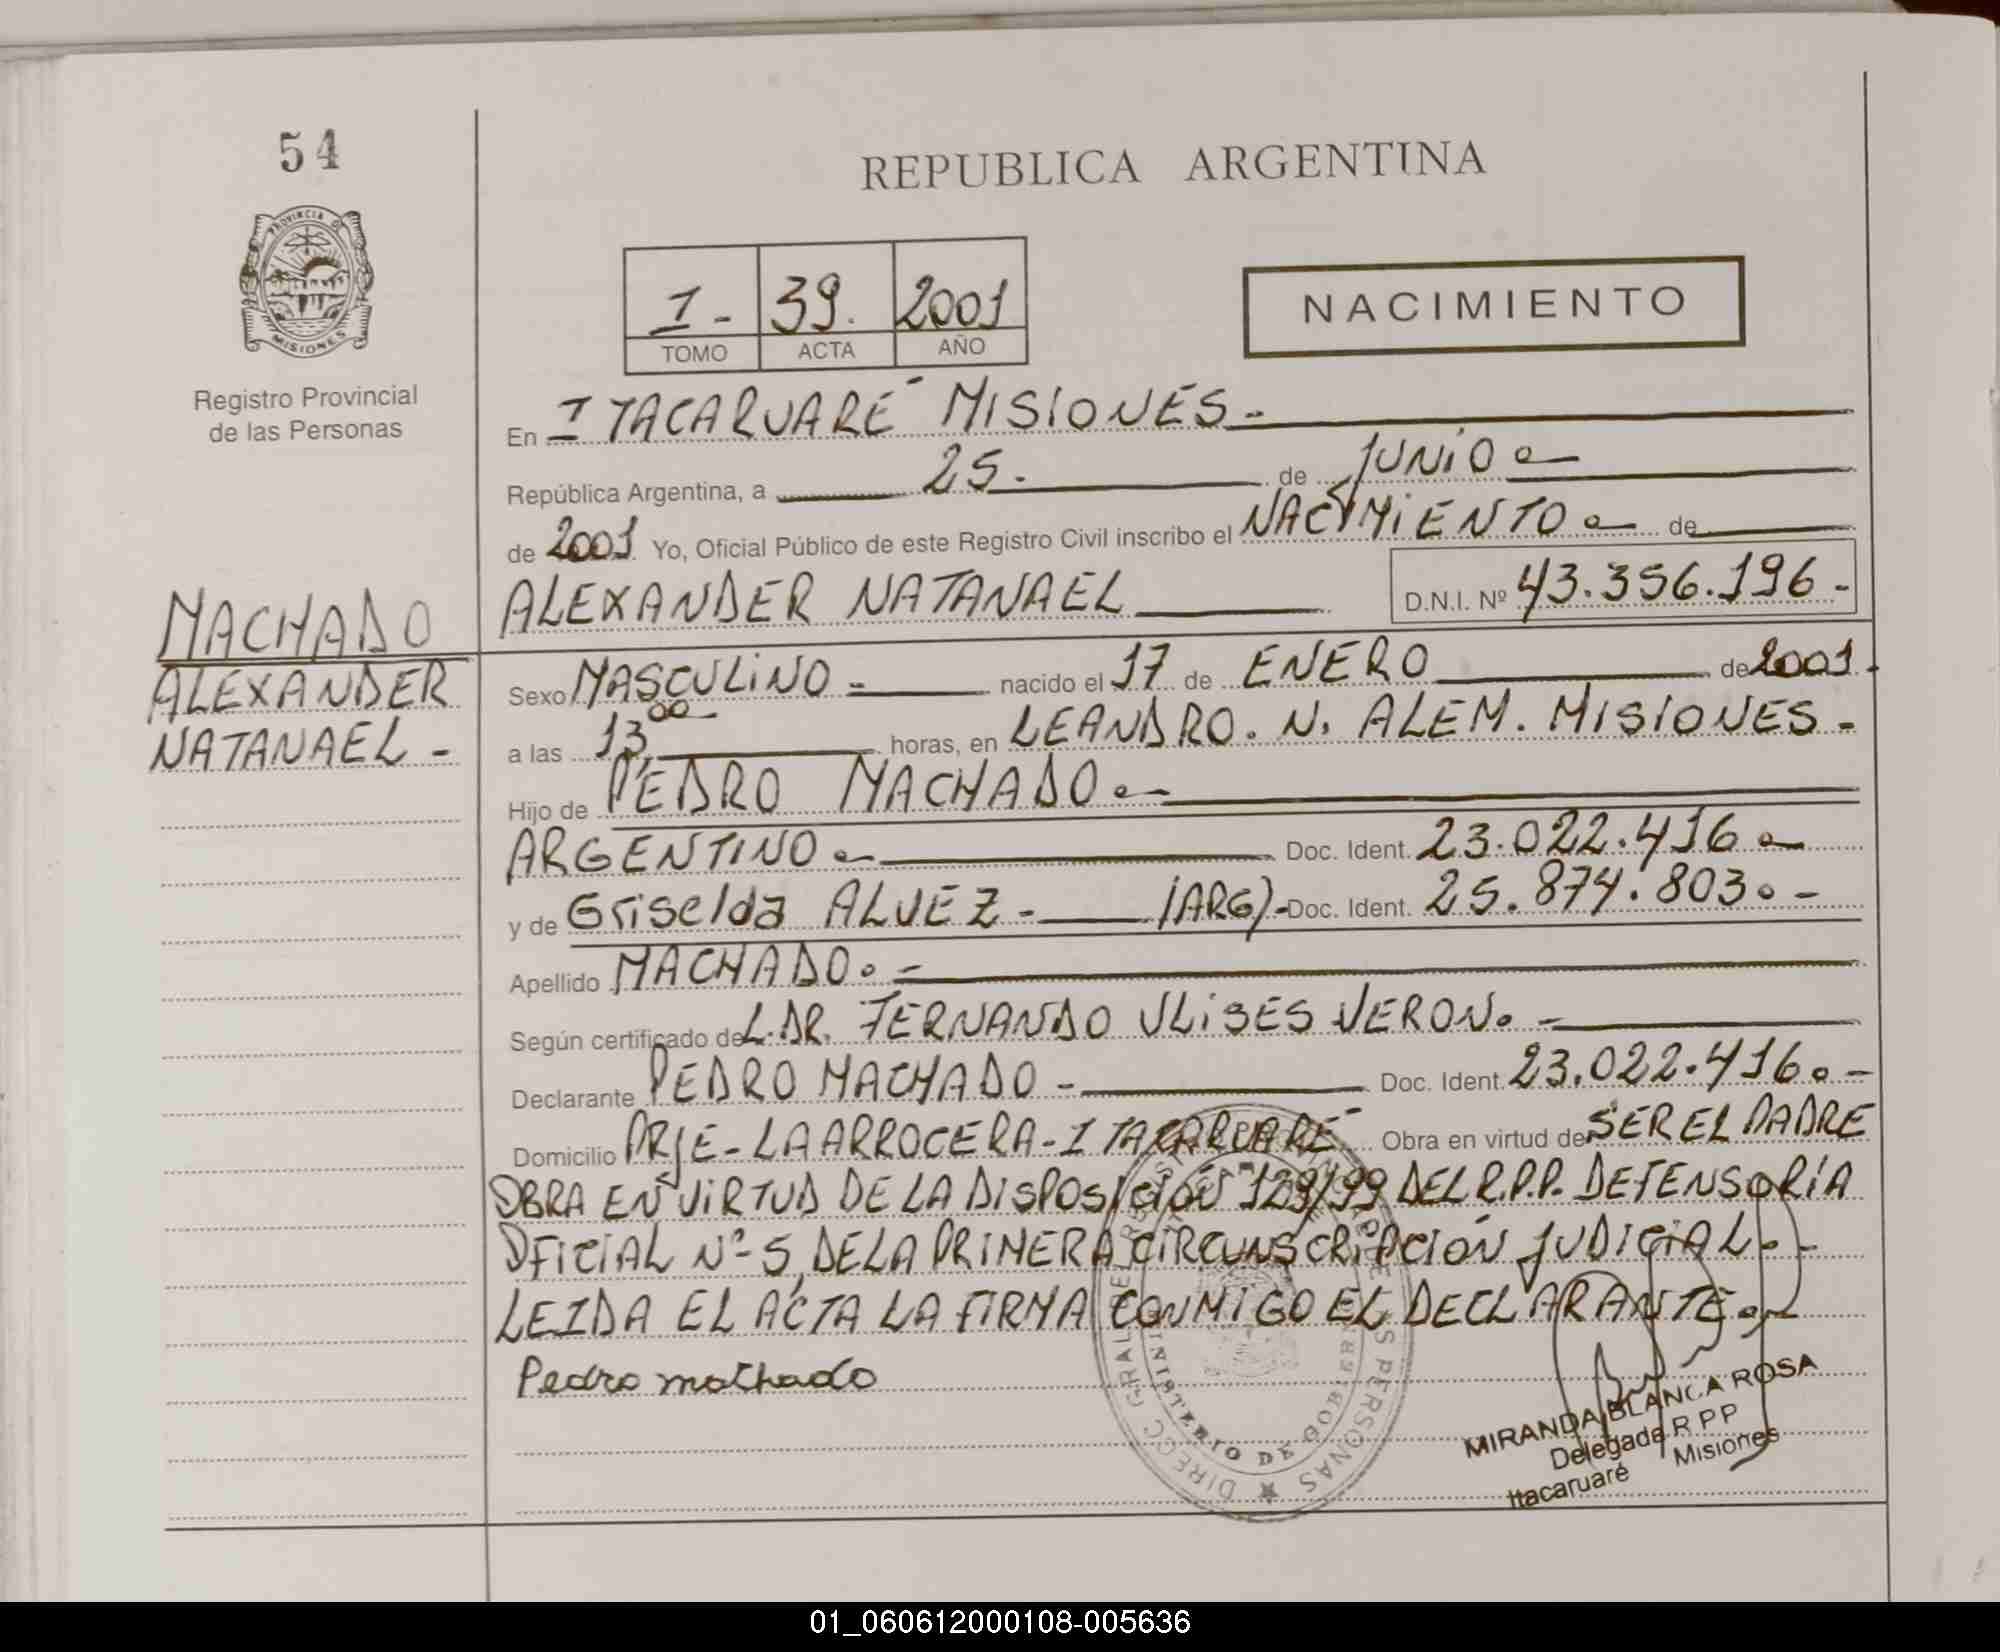 54
REPUBLICA ARGENTINA
PROVINCIA DE
MISIONES
Registro Provincial
de las Personas
I - 39. 2001
TOMO ACTA AÑO
NACIMIENTO
En ITACARUARÉ MISIONES -
República Argentina, a 25. de JUNIO
de 2001 Yo, Oficial Público de este Registro Civil inscribo el NACIMIENTO de
ALEXANDER NATANAEL D.N.I. Nº 43.356.196 -
MACHADO
ALEXANDER
NATANAEL -
Sexo MASCULINO - nacido el 17 de ENERO de 2001.
a las 13,00 horas, en LEANDRO. N. ALEM. MISIONES -
Hijo de PEDRO MACHADO
ARGENTINO Doc. Ident. 23.022.416
y de Griselda ALVEZ - (ARG)- Doc. Ident. 25.874.803. -
Apellido MACHADO. -
Según certificado de L. DR. FERNANDO ULISES VERON. -
Declarante PEDRO MACHADO - Doc. Ident. 23.022.416. -
Domicilio PRJE - LA ARROCERA - ITACARUARÉ Obra en virtud de SER EL PADRE
OBRA EN VIRTUD DE LA DISPOSICIÓN 129/99 DEL R.P.P. DEFENSORÍA
OFICIAL Nº 5, DE LA PRIMERA CIRCUNSCRIPCIÓN JUDICIAL. -
LEIDA EL ACTA LA FIRMA CONMIGO EL DECLARANTE. -
Pedro machado
MIRANDA BLANCA ROSA
Delegada R P P
Itacaruaré Misiones
MINISTERIO DE GOB
01_060612000108-005636